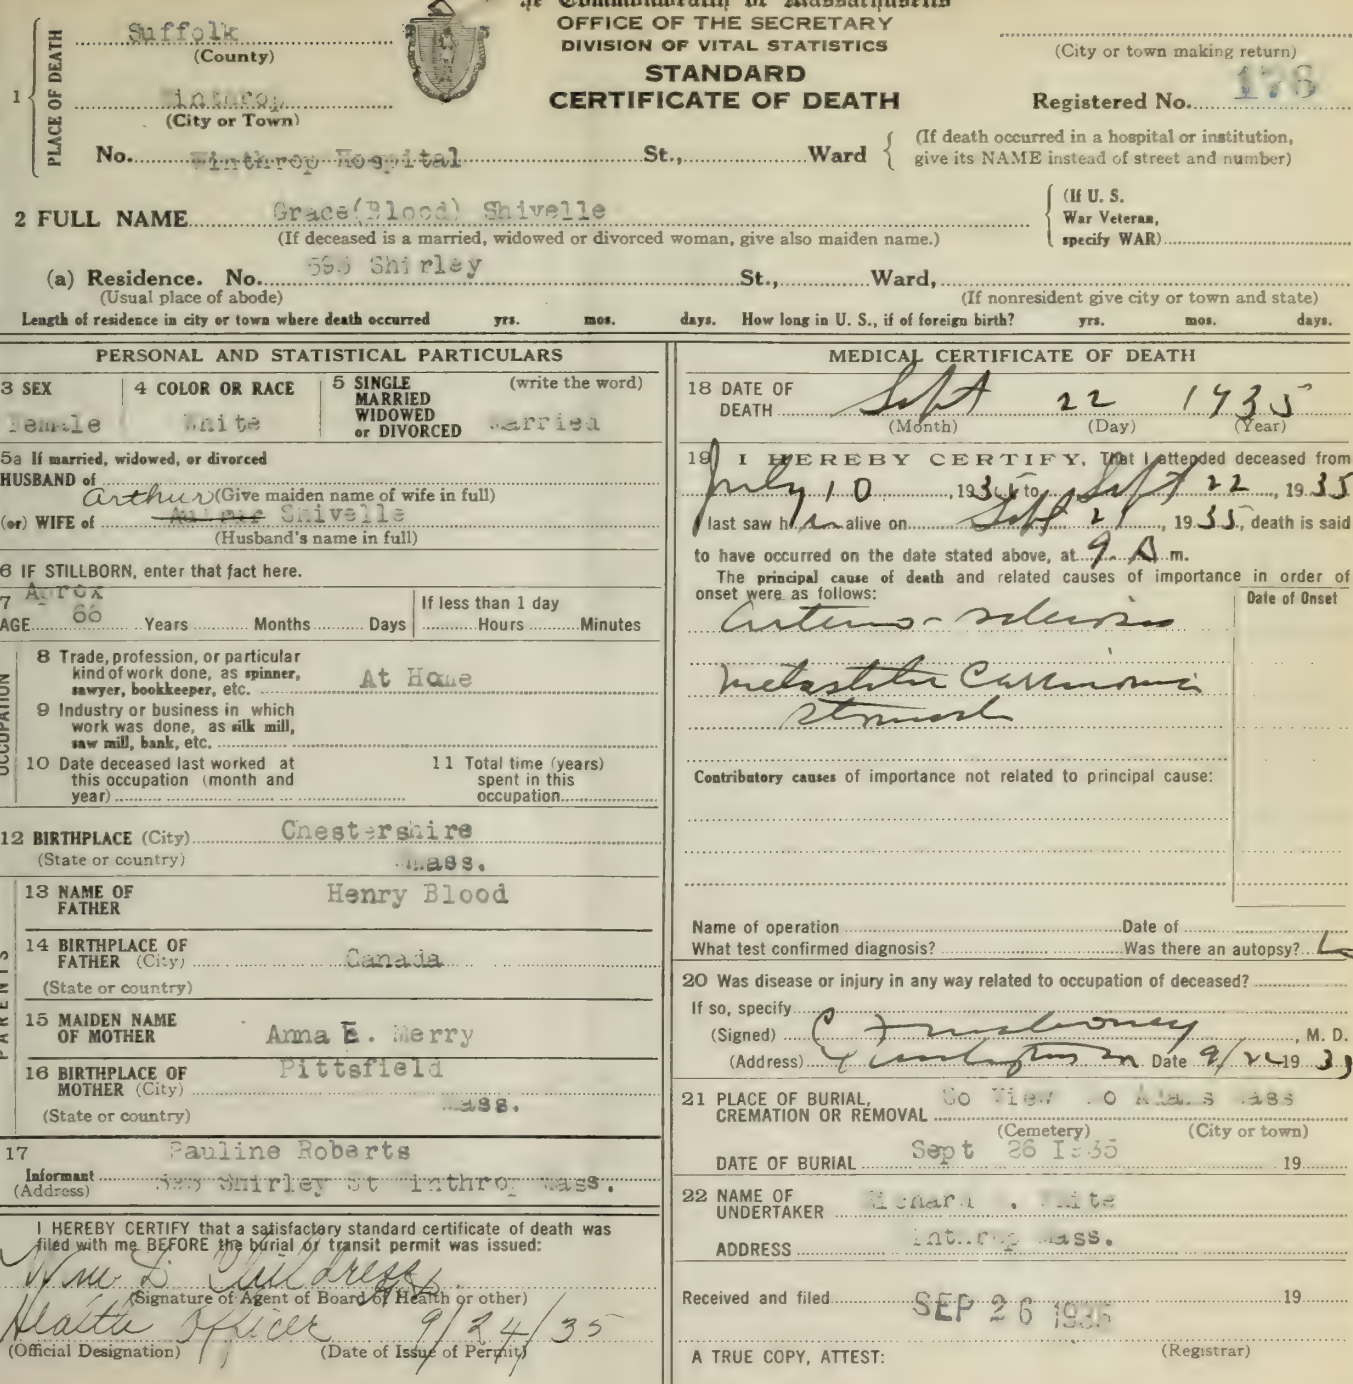 OFFICE OF THE SECRETARY
DIVISION OF VITAL STATISTICS
STANDARD
CERTIFICATE OF DEATH
1 PLACE OF DEATH
Suffolk
(County)
Winthrop
(City or Town)
No. Winthrop Hospital St., Ward
(If death occurred in a hospital or institution,
give its NAME instead of street and number)
(City or town making return)
Registered No. 178
2 FULL NAME Grace(Blood) Shivelle
(If deceased is a married, widowed or divorced woman, give also maiden name.)
(If U. S.
War Veteran,
specify WAR)
(a) Residence. No. Shirley St., Ward,
(Usual place of abode)
(If nonresident give city or town and state)
Length of residence in city or town where death occurred yrs. mos. days. How long in U. S., if of foreign birth? yrs. mos. days.
PERSONAL AND STATISTICAL PARTICULARS
3 SEX
Female
4 COLOR OR RACE
White
5 SINGLE
MARRIED
WIDOWED
or DIVORCED
(write the word)
Married
5a If married, widowed, or divorced
HUSBAND of
Arthur (Give maiden name of wife in full)
(or) WIFE of Shivelle
(Husband's name in full)
6 IF STILLBORN, enter that fact here.
Aprox
7 AGE 66 Years Months Days
If less than 1 day
Hours Minutes
OCCUPATION
8 Trade, profession, or particular
kind of work done, as spinner,
sawyer, bookkeeper, etc. At Home
9 Industry or business in which
work was done, as silk mill,
saw mill, bank, etc.
10 Date deceased last worked at
this occupation (month and
year)
11 Total time (years)
spent in this
occupation
12 BIRTHPLACE (City) Chestershire
(State or country) Mass.
PARENTS
13 NAME OF
FATHER
Henry Blood
14 BIRTHPLACE OF
FATHER (City) Canada
(State or country)
15 MAIDEN NAME
OF MOTHER
Anna E. Merry
16 BIRTHPLACE OF
MOTHER (City)
Pittsfield
(State or country) Mass.
17
Informant Pauline Roberts
(Address) Shirley St Winthrop Mass.
I HEREBY CERTIFY that a satisfactory standard certificate of death was
filed with me BEFORE the burial or transit permit was issued:
Wm D. Childress
(Signature of Agent of Board of Health or other)
Health Officer 9/24/35
(Official Designation) (Date of Issue of Permit)
MEDICAL CERTIFICATE OF DEATH
18 DATE OF
DEATH Sept 22 1935
(Month) (Day) (Year)
19 I HEREBY CERTIFY, That I attended deceased from
July 10, 1935 to Sept 22, 19 35
I last saw h er alive on Sept 21, 19 35, death is said
to have occurred on the date stated above, at 9 A.m.
The principal cause of death and related causes of importance in order of
onset were as follows:
Date of Onset
Arterio-sclerosis
Metastatic Carcinoma
Stomach
Contributory causes of importance not related to principal cause:
Name of operation Date of
What test confirmed diagnosis? Was there an autopsy?
20 Was disease or injury in any way related to occupation of deceased?
If so, specify
(Signed) M. D.
(Address) Date 9/22 19 35
21 PLACE OF BURIAL,
CREMATION OR REMOVAL So View No Adams Mass
(Cemetery) (City or town)
DATE OF BURIAL Sept 26 1935 19
22 NAME OF
UNDERTAKER Richard White
ADDRESS Winthrop Mass.
Received and filed SEP 26 1935 19
A TRUE COPY, ATTEST:
(Registrar)